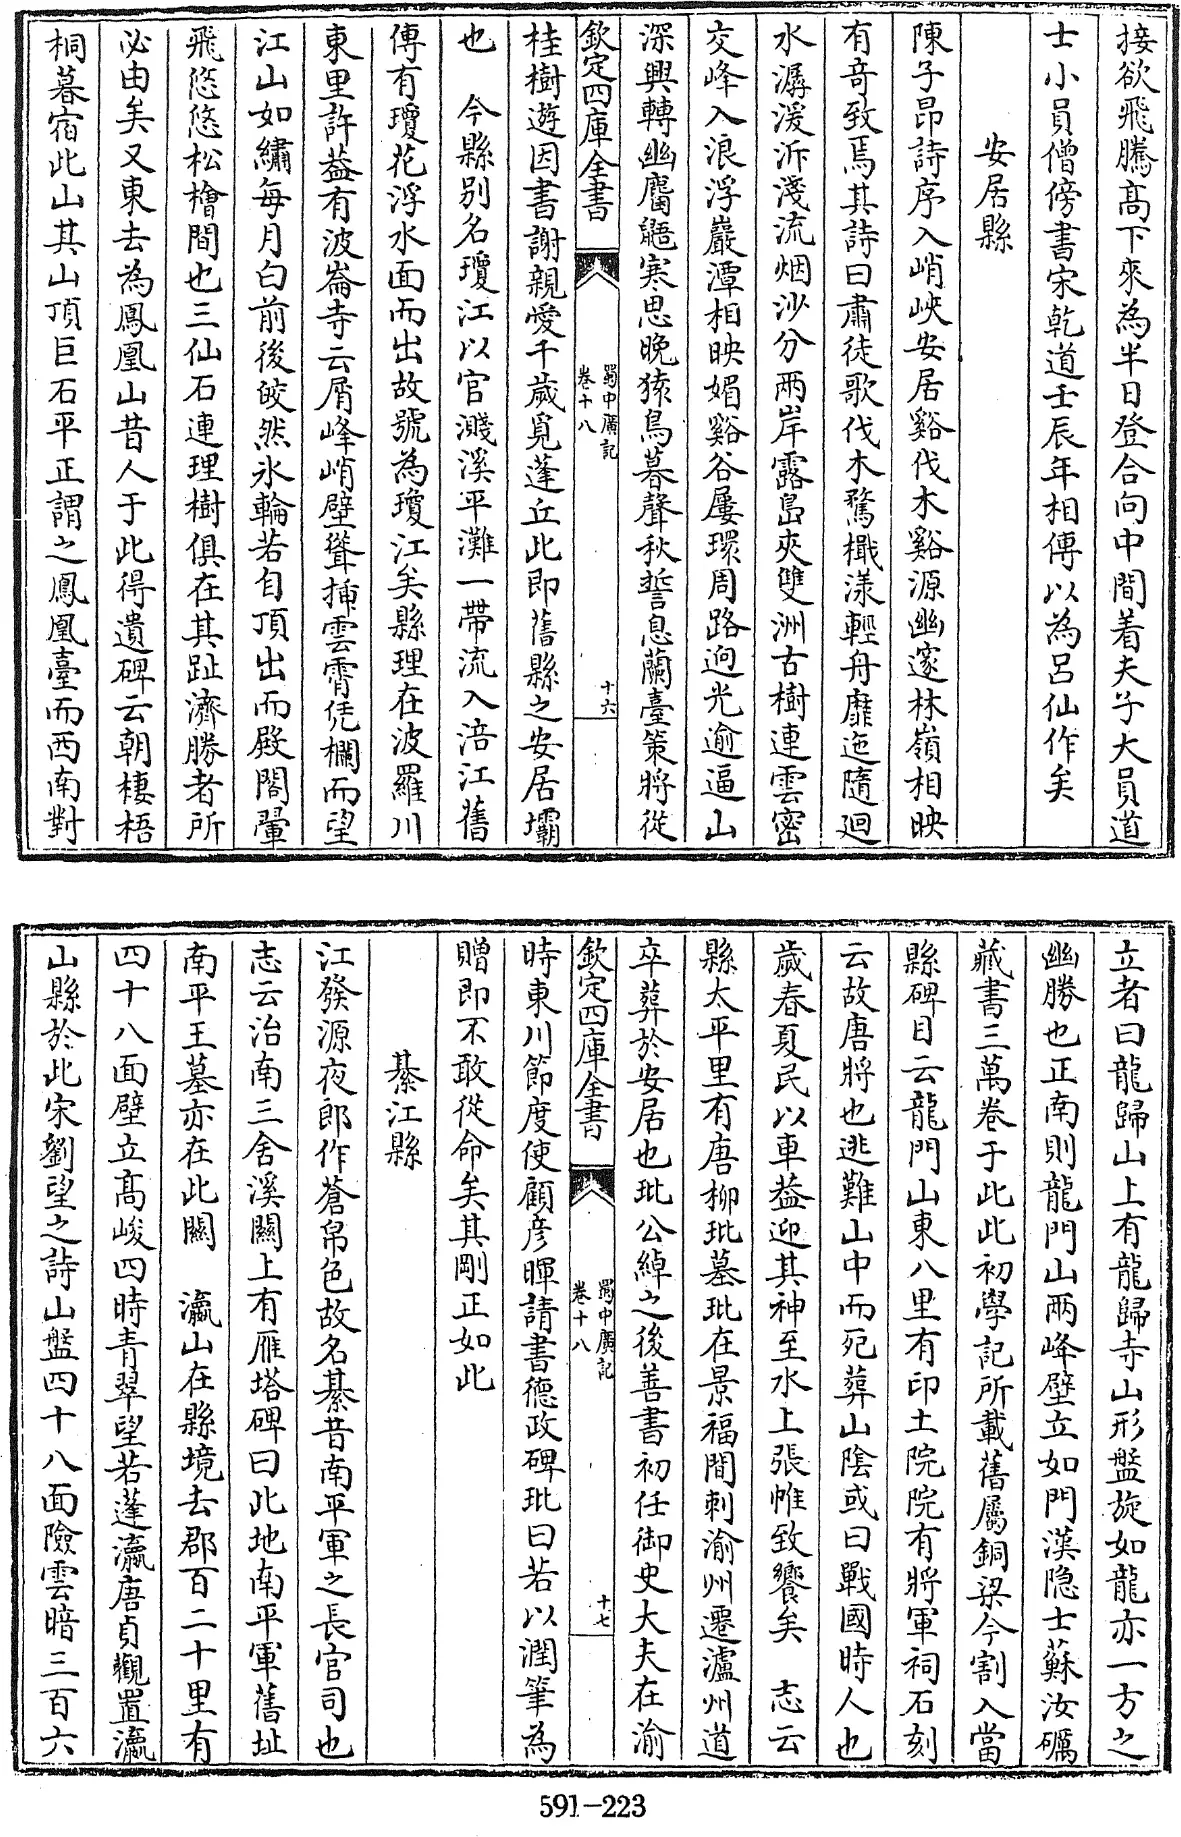 接欲飛騰高下來為半日登合向中間着夫子大員道
士小員僧傍書宋乾道壬辰年相傳以為呂仙作矣
安居縣
陳子昂詩序入峭峽安居谿伐木谿源幽邃林嶺相映
有奇致焉其詩曰肅徒歌伐木騖檝漾輕舟靡迤隨廻
水潺湲泝淺流烟沙分兩岸露島夾雙洲古樹連雲密
交峰入浪浮巖潭相映媚谿谷屢環周路逈光逾逼山
深興轉幽麕鼯寒思晚猿鳥暮聲秋誓息蘭臺策將從
欽定四庫全書
蜀中廣記
卷十八
十六
桂樹遊因書謝親愛千歲覓蓬丘此即舊縣之安居壩
也 今縣别名瓊江以官濺溪平灘一帶流入涪江舊
傳有瓊花浮水面而出故號為瓊江矣縣理在波羅川
東里許葢有波崙寺云屑峰峭壁聳揷雲霄凭欄而望
江山如繡每月白前後皎然氷輪若自頂出而殿閣翬
飛悠悠松檜間也三仙石連理樹俱在其趾濟勝者所
必由矣又東去為鳳凰山昔人于此得遺碑云朝棲梧
桐暮宿此山其山頂巨石平正謂之鳳凰臺而西南對
立者曰龍歸山上有龍歸寺山形盤旋如龍亦一方之
幽勝也正南則龍門山兩峰壁立如門漢隐士蘇汝礪
藏書三萬卷于此此初學記所載舊屬銅梁今割入當
縣碑目云龍門山東八里有印土院院有將軍祠石刻
云故唐將也逃難山中而死葬山陰或曰戰國時人也
歲春夏民以車葢迎其神至水上張帷致饗矣 志云
縣太平里有唐柳玭墓玭在景福間刺渝州遷瀘州道
卒葬於安居也玭公綽之後善書初任御史大夫在渝
欽定四庫全書
蜀中廣記
卷十八
十七
時東川節度使顧彦暉請書德政碑玭曰若以潤筆為
贈即不敢從命矣其剛正如此
綦江縣
江發源夜郎作蒼帛色故名綦昔南平軍之長官司也
志云治南三舍溪關上有雁塔碑曰此地南平軍舊址
南平王墓亦在此關 瀛山在縣境去郡百二十里有
四十八面壁立高峻四時青翠望若蓬瀛唐貞觀置瀛
山縣於此宋劉望之詩山盤四十八面險雲暗三百六
591-223